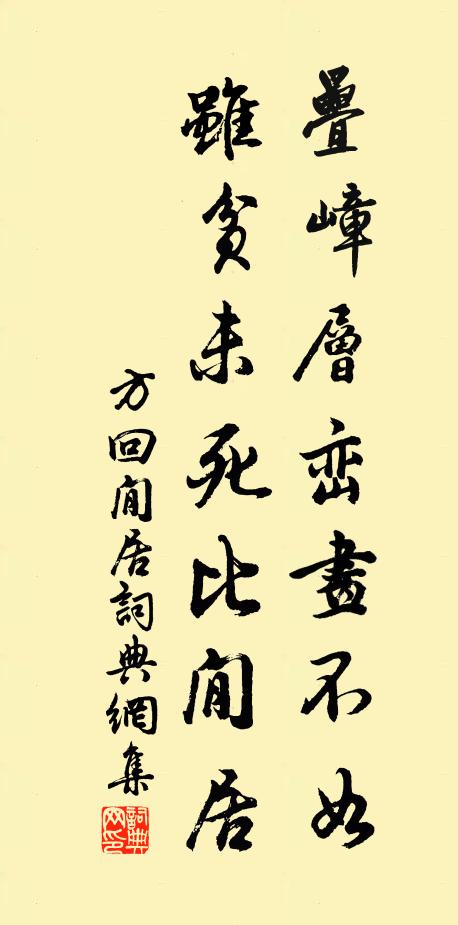 疊嶂層巒畫不如
雖貧未死比閒居
方回閒居詞典網集
詞典网印